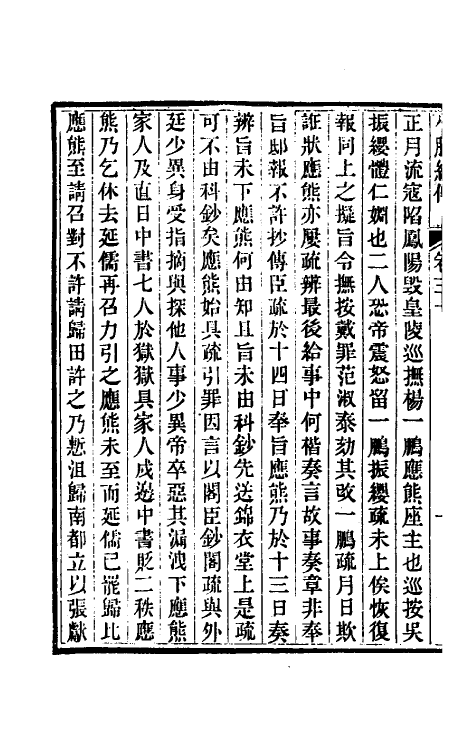 正月流寇陷鳳陽毀皇陵巡撫楊一鵬應熊座主也巡按吳
振纓體仁婣也二人恐帝震怒留一鵬振纓疏未上俟恢復
報同上之擬旨令撫按戴罪范淑泰劾其改一鵬疏月日欺
誑狀應熊亦屢疏辨最後給事中何楷奏言故事奏章非奉
旨邸報不許抄傳臣疏於十四日奉旨應熊乃於十三日奏
辨旨未下應熊何由知且旨未由科鈔先送錦衣堂上是疏
可不由科鈔矣應熊始具疏引罪因言以閣臣鈔閣疏與外
廷少異身受指摘與探他人事少異帝卒惡其漏洩下應熊
家人及直日中書七人於獄獄具家人戍邊中書貶二秩應
熊乃乞休去延儒再召力引之應熊未至而延儒已罷歸比
應熊至請召對不許請歸田許之乃慙沮歸南都立以張獻